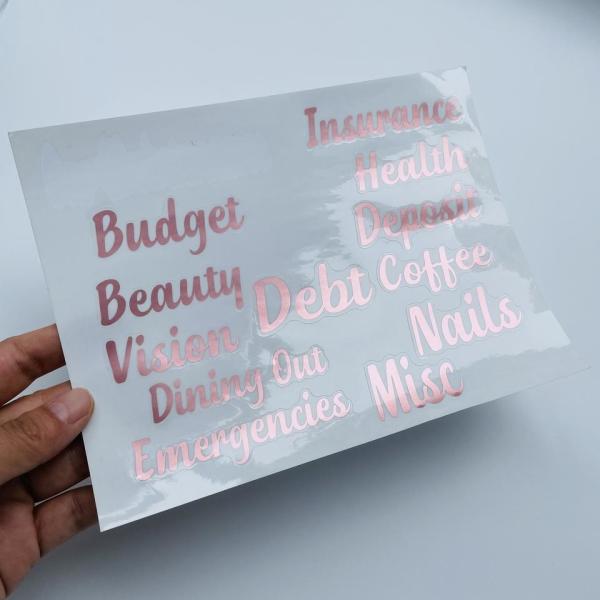 Insurance
Health
Deposit
Budget
Beauty
Debt
Coffee
Vision
Nails
Dining Out
Misc
Emergencies